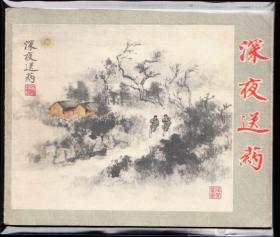 深夜送药
深夜送药